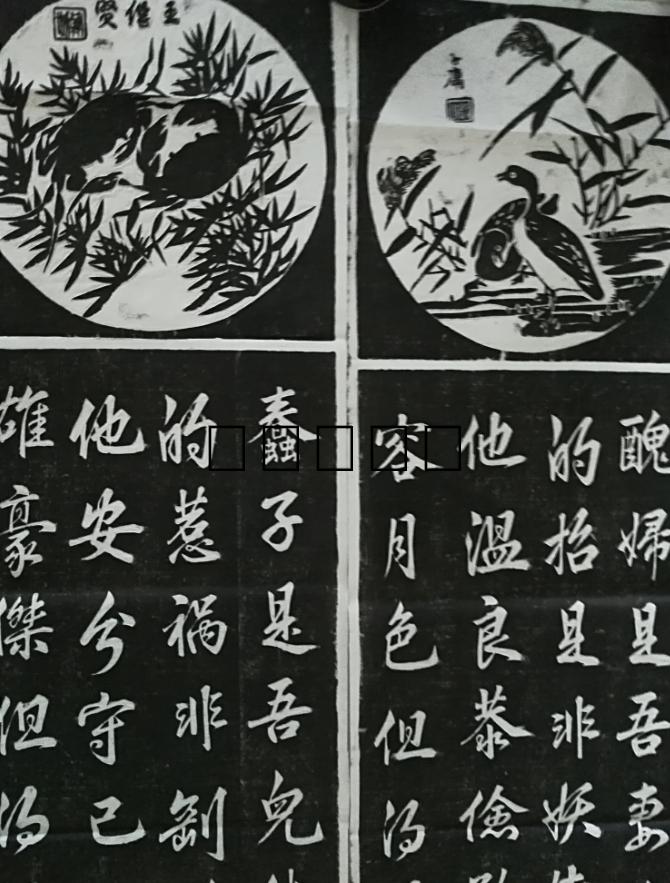 子庸
醜婦是吾妻
的招是非妖
他溫良恭儉
容月色但得
蠢子是吾兒
的惹禍非剛
他安分守己
雄豪傑但得